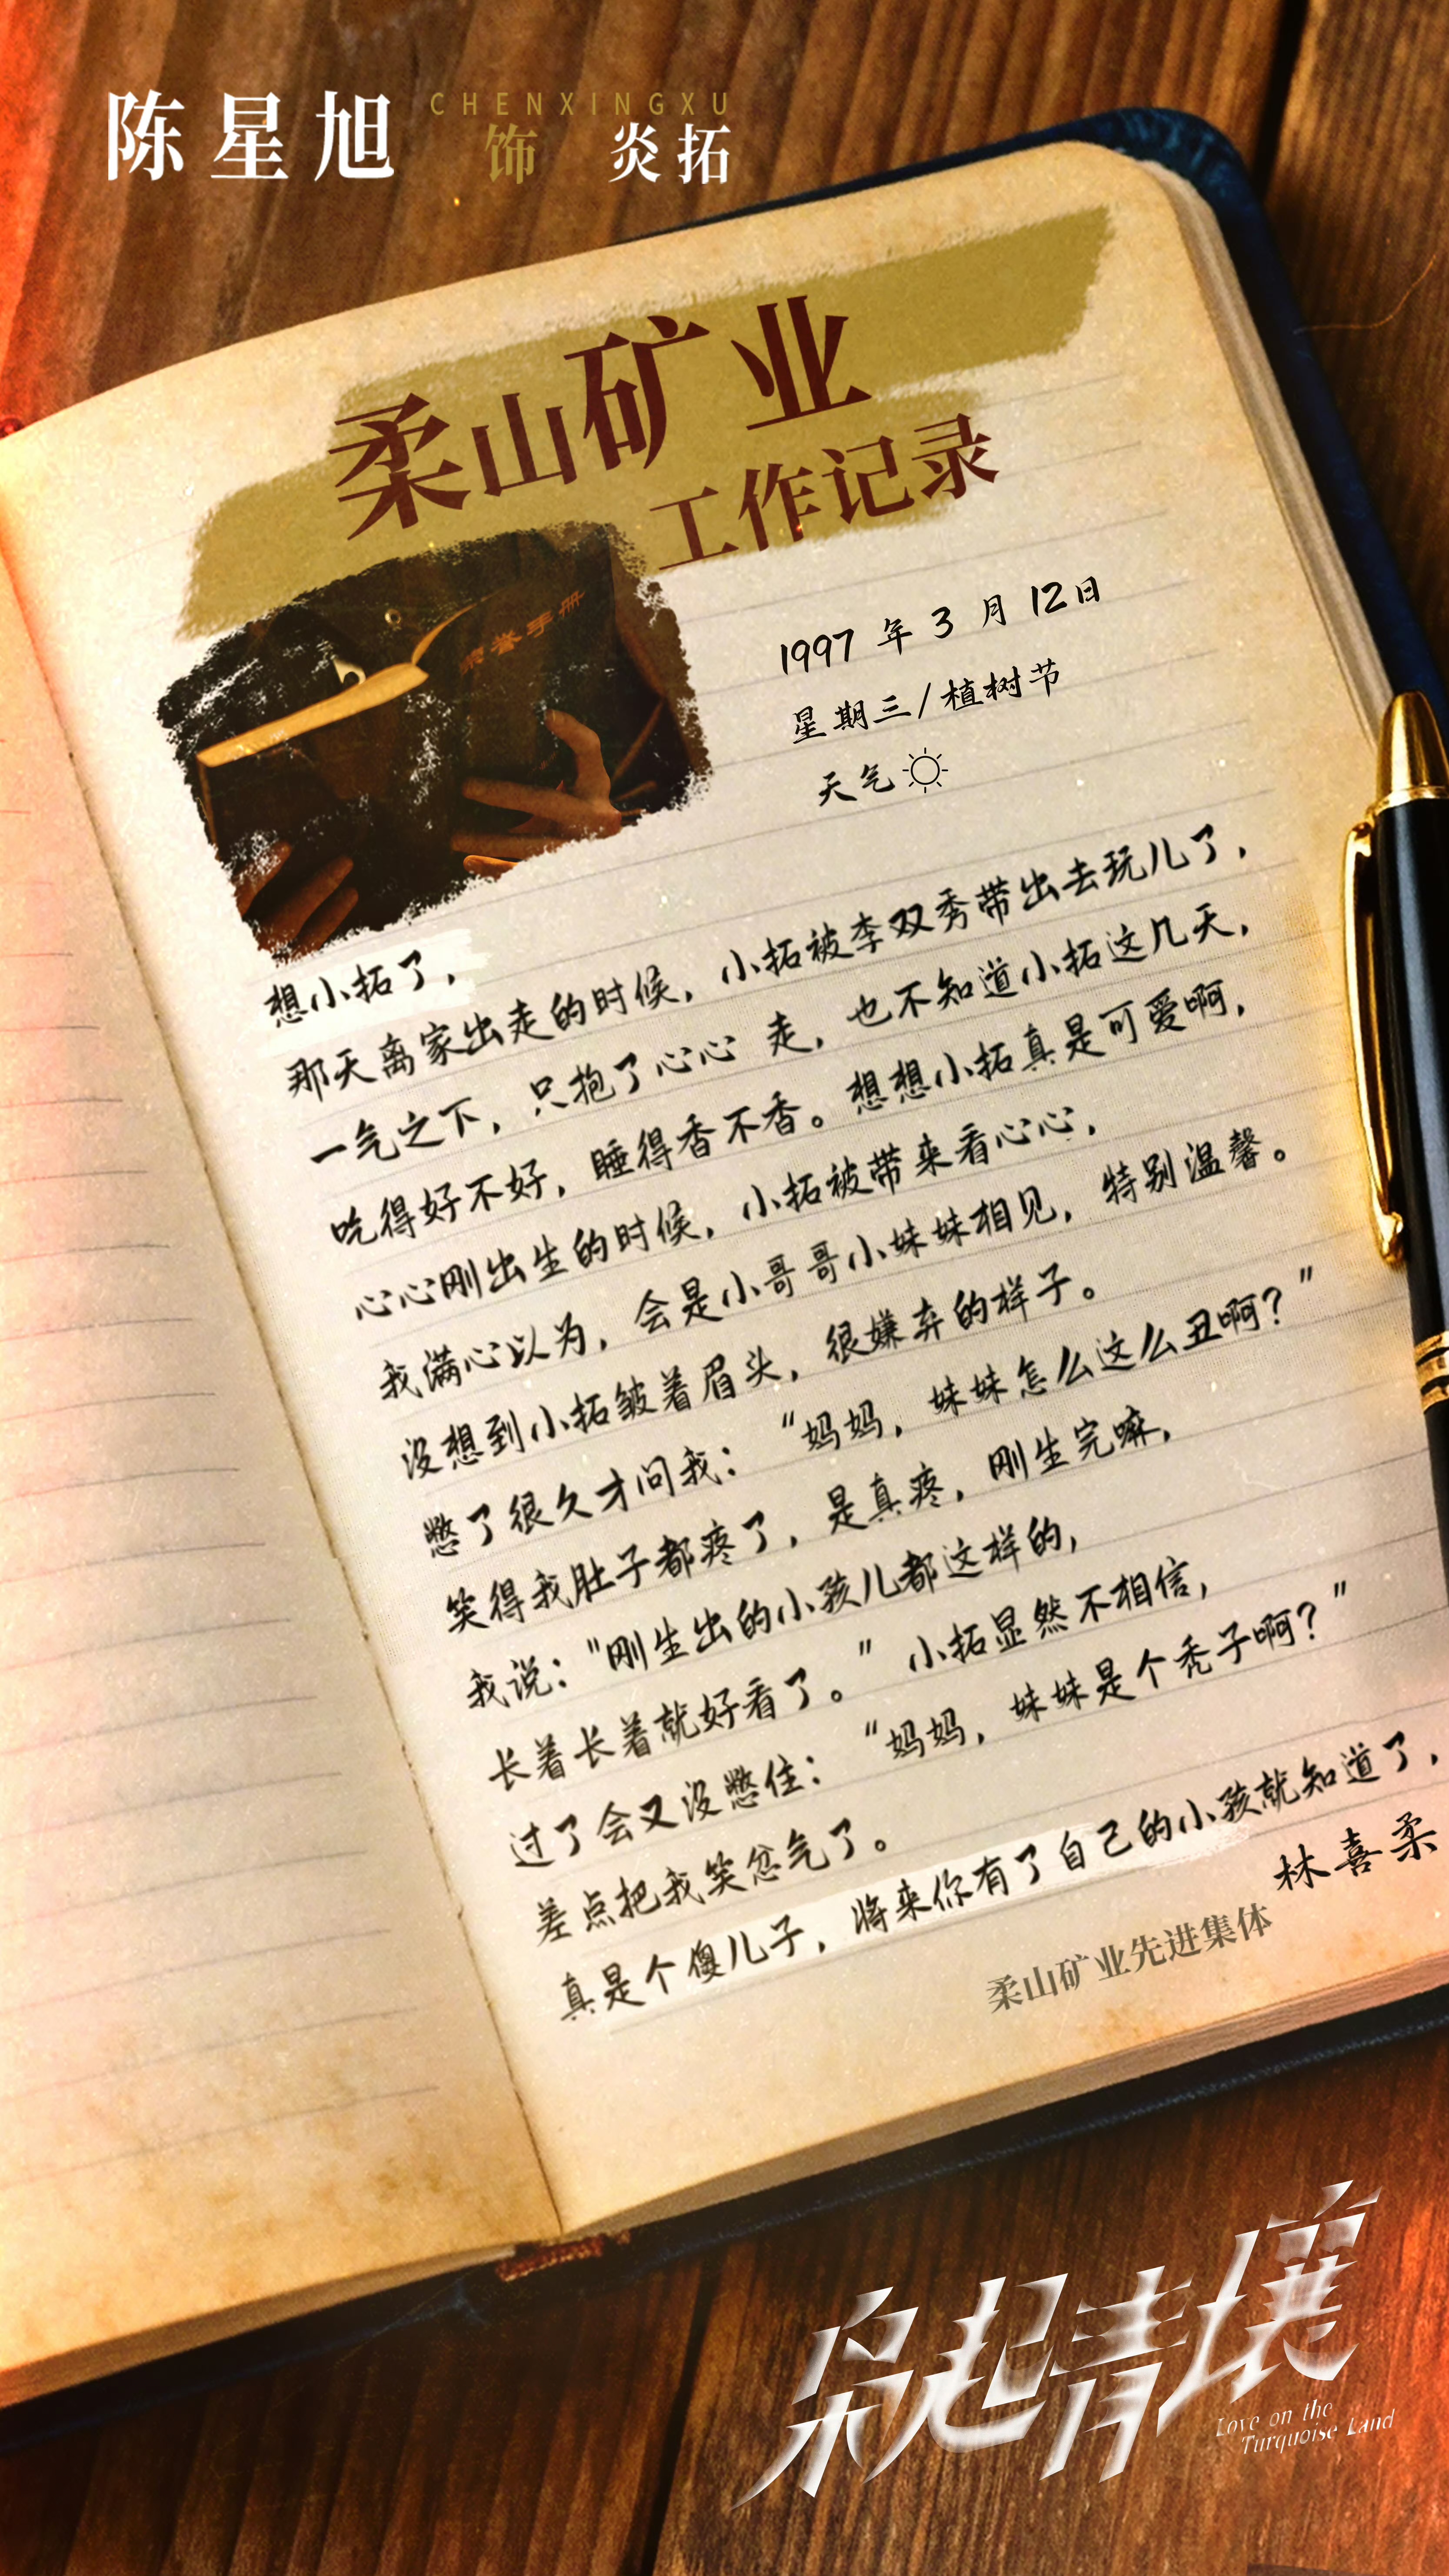 陈星旭
CHENXINGXU
饰 炎拓
柔山矿业
工作记录
荣誉手册
1997 年 3 月 12日
星期三/植树节
天气
想小拓了，
那天离家出走的时候，小拓被李双秀带出去玩儿了，
一气之下，只抱了心心 走，也不知道小拓这几天，
吃得好不好，睡得香不香。想想小拓真是可爱啊，
心心刚出生的时候，小拓被带来看心心，
我满心以为，会是小哥哥小妹妹相见，特别温馨。
没想到小拓皱着眉头，很嫌弃的样子。
憋了很久才问我：“妈妈，妹妹怎么这么丑啊？”
笑得我肚子都疼了，是真疼，刚生完嘛，
我说：“刚生出的小孩儿都这样的，
长着长着就好看了。”小拓显然不相信，
过了会又没憋住：“妈妈，妹妹是个秃子啊？”
差点把我笑岔气了。
真是个傻儿子，将来你有了自己的小孩就知道了，
林喜柔
柔山矿业先进集体
枭起青壤
Love on the
Turquoise Land